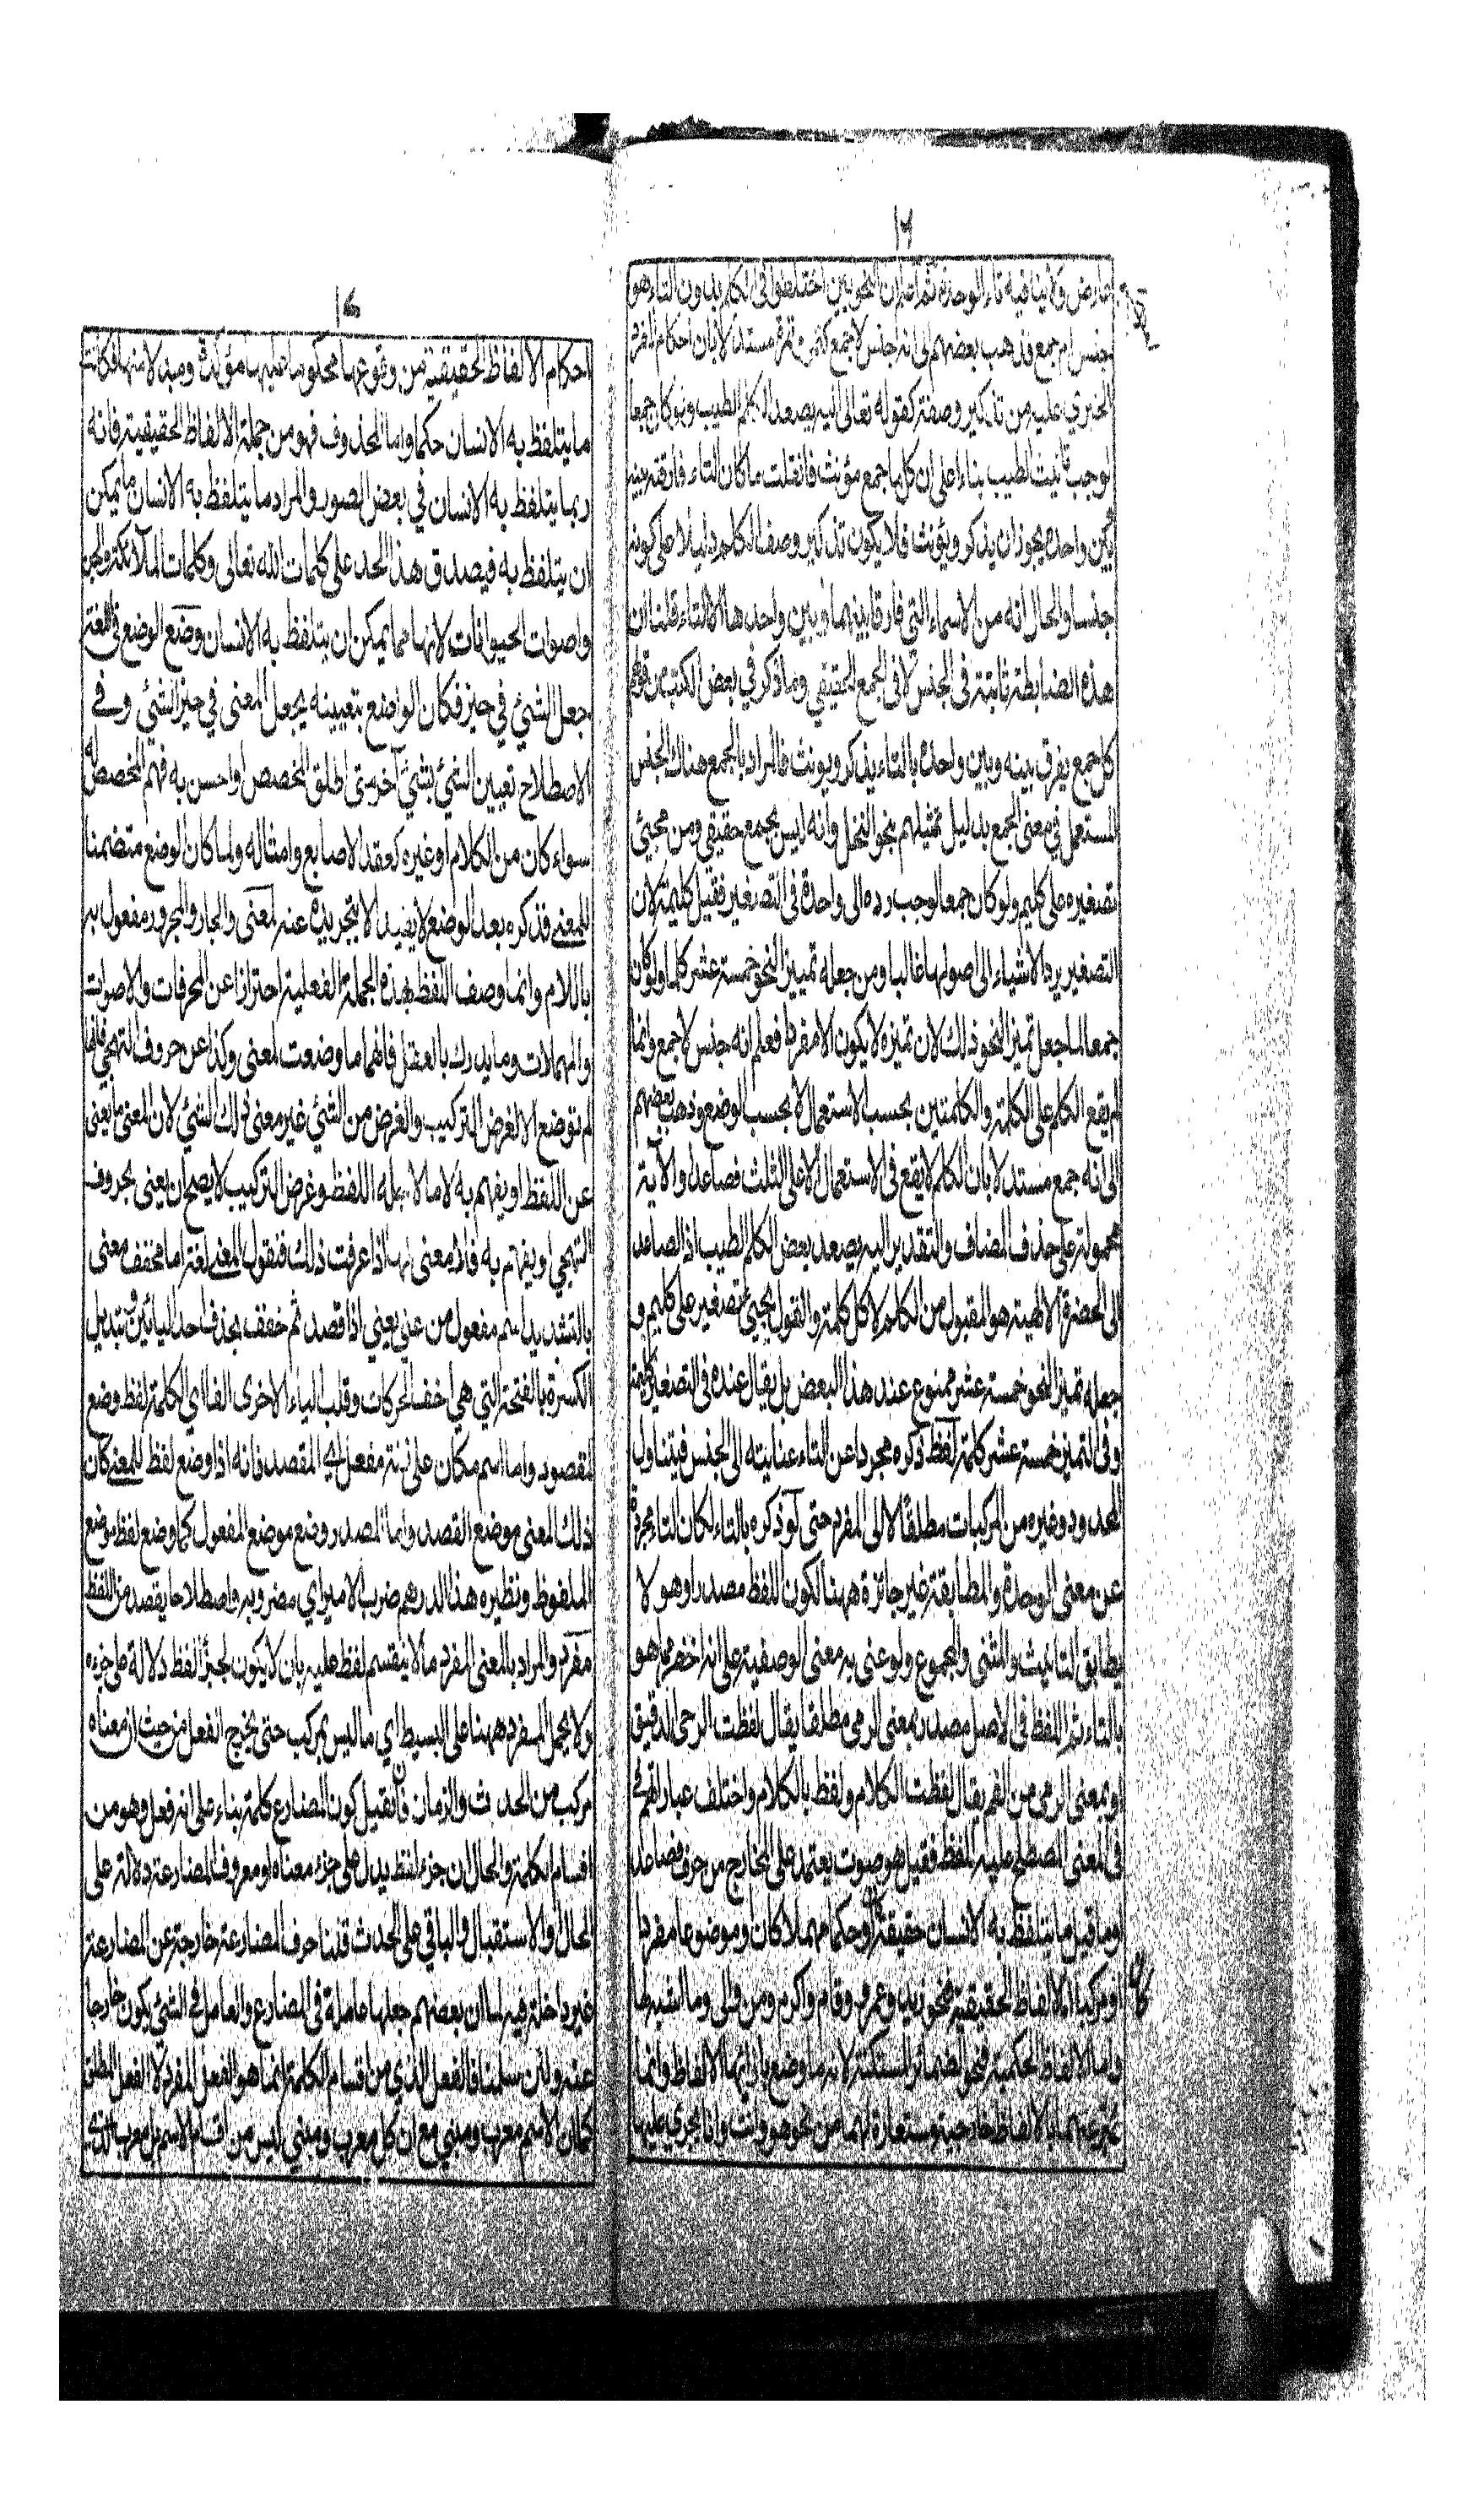 ١٦
عارض ولا ينافيه تاء الوحدة ثم اعلم ان النحويين اختلفوا في الكلم بدون التاء هو
جنس ام جمع فذهب بعضهم الى انه جنس لا جمع كتمر وتمرة مستدلا بان احكام المفرد
عليه من تذكير وصفه كقوله تعالى اليه يصعد الكلم الطيب ولو كان جمعا
لوجب تانيث الطيب بناء على ان كل ما جمع مؤنث فان قلت ما كان التاء فارقة بينه
وبين واحده يجوز ان يذكر ويؤنث فلا يكون تذكير وصف الكلم دليلا على كونه
جنسا والحال انه من الاسماء التي فارقا بينهما وبين واحدها الا التاء قلنا ان
هذه الضابطة ثابتة في الجنس لا في الجمع الحقيقي وما ذكر في بعض الكتب من قولهم
كل جمع يفرق بينه وبين واحده بالتاء يذكر ويونث فالمراد بالجمع هناك الجنس
المستعمل في معنى الجمع بدليل تمثيلهم بنحو النخل وانه ليس بجمع حقيقي ومن مجيئ
تصغيره على كليم ولو كان جمعا لوجب رده الى واحدة في التصغير فقيل كليمة لان
التصغير يرد الاشياء الى اصولها غالبا ومن جعله تمييز النحو خمسة عشر كلما ولو كان
جمعا لما جعل تميز النحو ذلك لان تميزه لا يكون الا مفردا فعلم انه جنس لا جمع وانما
لم يقع الكلم على الكلمة والكلمتين بحسب الاستعمال لا بحسب الوضع وذهب بعضهم
الى انه جمع مستدلا بان الكلم لا يقع في الاستعمال الا على الثلث فصاعدا والآية
محمولة على حذف المضاف والتقدير اليه يصعد بعض الكلم الطيب اذ الصاعد
الى الحضرة الالهية هو المقبول من الكلم لا كل كلمة والقول بمجيئ تصغير على كليم و
جعله تميز النحو خمسة عشر ممنوع عند هذا البعض بل يقال عنده في التصغير كليمة
وفي التميز خمسة عشر كلمة لفظ ذكره مجردا عن التاء عنايته الى الجنس فيتناول
المحدود وغيره من المركبات مطلقا لا الى المفرد حتى لو ذكره بالتاء لكان التاء مجردة
عن معنى الوحدة والمطابقة غير جائزة ههنا لكون اللفظ مصدرا وهو لا
يطابق التانيث والمثنى والمجموع ولو عنى به معنى الوصفية على انه اخصر مما هو
بالتاء ثم اللفظ في الاصل مصدر بمعنى الرمي مطلقا يقال لفظت الرحى الدقيق
او بمعنى الرمي من الفم يقال لفظت الكلام ولفظ بالكلام واختلف عباراتهم
في المعنى المصطلح عليه للفظ فقيل هو صوت يعتمد على المخارج من حرف فصاعدا
وما قيل ما يتلفظ به الانسان حقيقة او حكما مهملا كان او موضوعا مفردا
او مركبا اما الالفاظ الحقيقية فنحو زيد وعمرو وقام واكرم ومن والى وما اشبهها
واما الالفاظ الحكمية فنحو الضمائر المستكنة لانه ما وضع بازائها الالفاظ وانما
عبر عنهما بالالفاظ خارجية مستعارة لهما من نحو هو وانت وانا يجري عليها
١٧
احكام الالفاظ الحقيقية من وقوعها محكوما عليها ومؤكدة ومبدلا منها فكانت
ما يتلفظ به الانسان حكما واما المحذوف فهو من جملة الالفاظ الحقيقية فانه
ربما يتلفظ به الانسان في بعض الصور والمراد ما يتلفظ به الانسان ما يمكن
ان يتلفظ به فيصدق هذا الحد على كلمات الله تعالى وكلمات الملآئكة والجن
واصوات الحيوانات لانها مما يمكن ان يتلفظ به الانسان وضع الوضع في اللغة
جعل الشئ في حيز فكان الواضع بتعيينه يجعل المعنى في حيز الشئ وفي
الاصطلاح تعيين الشئ بشئ آخر متى اطلق المخصص او احسن به فهم المخصص له
سواء كان من الكلام او غيره كعقد الاصابع وامثاله ولما كان الوضع متضمنا
للمعنى فذكره بعد الوضع لا يفيد الا بتجريده عنه لمعنى والجار والمجرور مفعول به
باللام وانما وصف اللفظ بهذه الجملة الفعلية احترازا عن المحرفات والاصوات
والمهملات وما يدرك بالعقل فانها ما وضعت لمعنى وكذا عن حروف التهجي فانها
لم توضع الا لغرض التركيب والغرض من الشئ غير معنى ذلك الشئ لان المعنى ما يعنى
عن اللفظ او يفهم به لا ما لاجله اللفظ وغرض التركيب لا يصح ان يعنى بحروف
التهجي او يفهم به فلا معنى لها اذا عرفت ذلك فنقول المعنى لغة اما مخفف معنى
بالتشديد اسم مفعول من عنى يعني اذا قصد ثم خفف بحذف احد اليائين وتبديل
الكسرة بالفتحة التي هي اخف الحركات وقلب الياء الاخرى الفا اي الكلمة لفظ وضع
المقصود واما اسم مكان على زنة مفعل اي المقصد فانه اذا وضع لفظ للمعنى كان
ذلك المعنى موضع القصد واما المصدر وضع موضع المفعول كما وضع لفظ موضع
الملفوظ ونظيره هذا الدرهم ضرب الامير اي مضروبه واصطلاحا يقصد من اللفظ
مفرد والمراد بالمعنى المفرد ما لا ينقسم لفظ عليه بان لا يكون لجزء لفظ دلالة على جزءه
ولا يحمل المفرد ههنا على البسيط اي ما ليس بمركب حتى يخرج الفعل من حيث ان معناه
مركب من الحدث والزمان فان قيل كون المضارع كلمة بناء على انه فعل وهو من
اقسام الكلمة والحال ان جزء لفظ يدل على جزء معناه لو معروف المضارعة دالة على
الحال والاستقبال والباقي على الحدث قلنا حرف المضارعة خارجة عن المضارعة
غير داخلة فيه لما ان بعضهم جعلها عاملة في المضارع والعامل في الشئ يكون خارجا
عنه ولئن سلمنا فالفعل الذي من اقسام الكلمة انما هو الفعل المفرد لا الفعل المطلق
كما ان الاسم معرب ومبني مع ان كل معرب ومبني ليس من اقسام الاسم بل معرب الذي